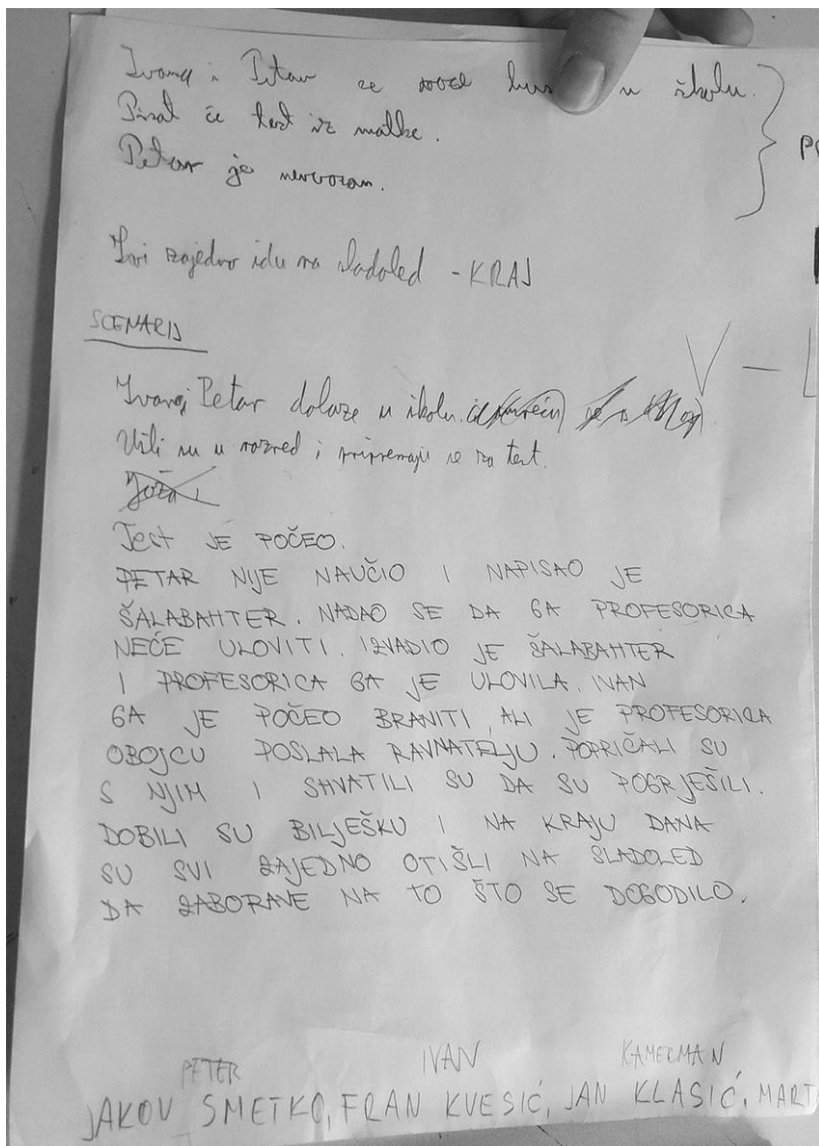 Ivana i Petar se voze bus u školu.
Pisat će test iz matke.
Petar je nervozan.
Svi zajedno idu na sladoled - KRAJ
SCENARIJ
V - L
Ivan i Petar dolaze u školu.
Ušli su u razred i pripremaju se za test.
Test JE POČEO.
PETAR NIJE NAUČIO I NAPISAO JE
ŠALABAHTER. NADAO SE DA GA PROFESORICA
NEĆE ULOVITI. IZVADIO JE ŠALABAHTER
I PROFESORICA GA JE ULOVILA. IVAN
GA JE POČEO BRANITI, ALI JE PROFESORICA
OBOJCU POSLALA RAVNATELJU. POPRIČALI SU
S NJIM I SHVATILI SU DA SU POGRJEŠILI.
DOBILI SU BILJEŠKU I NA KRAJU DANA
SU SVI ZAJEDNO OTIŠLI NA SLADOLED
DA ZABORAVE NA TO ŠTO SE DOGODILO.
PETER IVAN KAMERMAN
JAKOV SMETKO, FRAN KVESIĆ, JAN KLASIĆ, MART